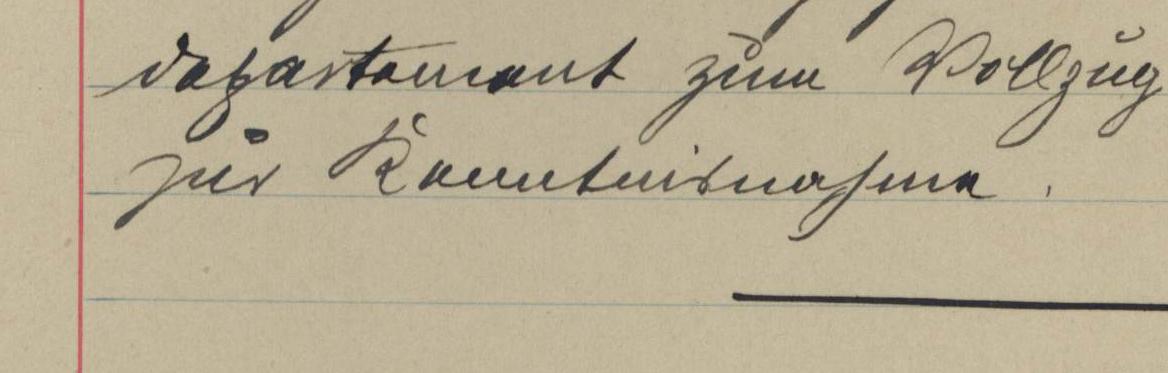 departement zum Vollzug
zur Kenntnisnahme.